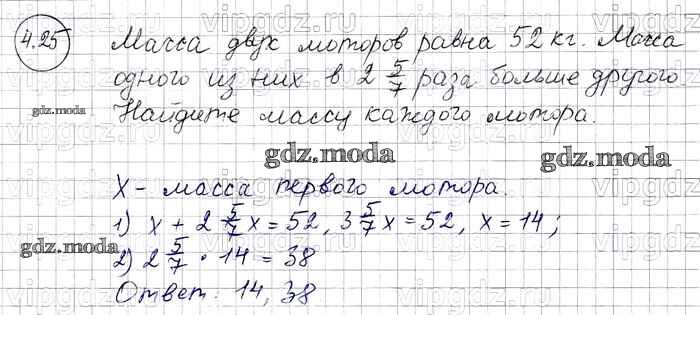 4.25 Масса двух моторов равна 52 кг. Масса
одного из них в 2 5/7 раза больше другого.
Найдите массу каждого мотора.
X - масса первого мотора.
1) x + 2 5/7 x = 52, 3 5/7 x = 52, x = 14;
2) 2 5/7 • 14 = 38
Ответ: 14, 38
gdz.moda
gdz.moda
gdz.moda
gdz.moda
vipgdz.ru